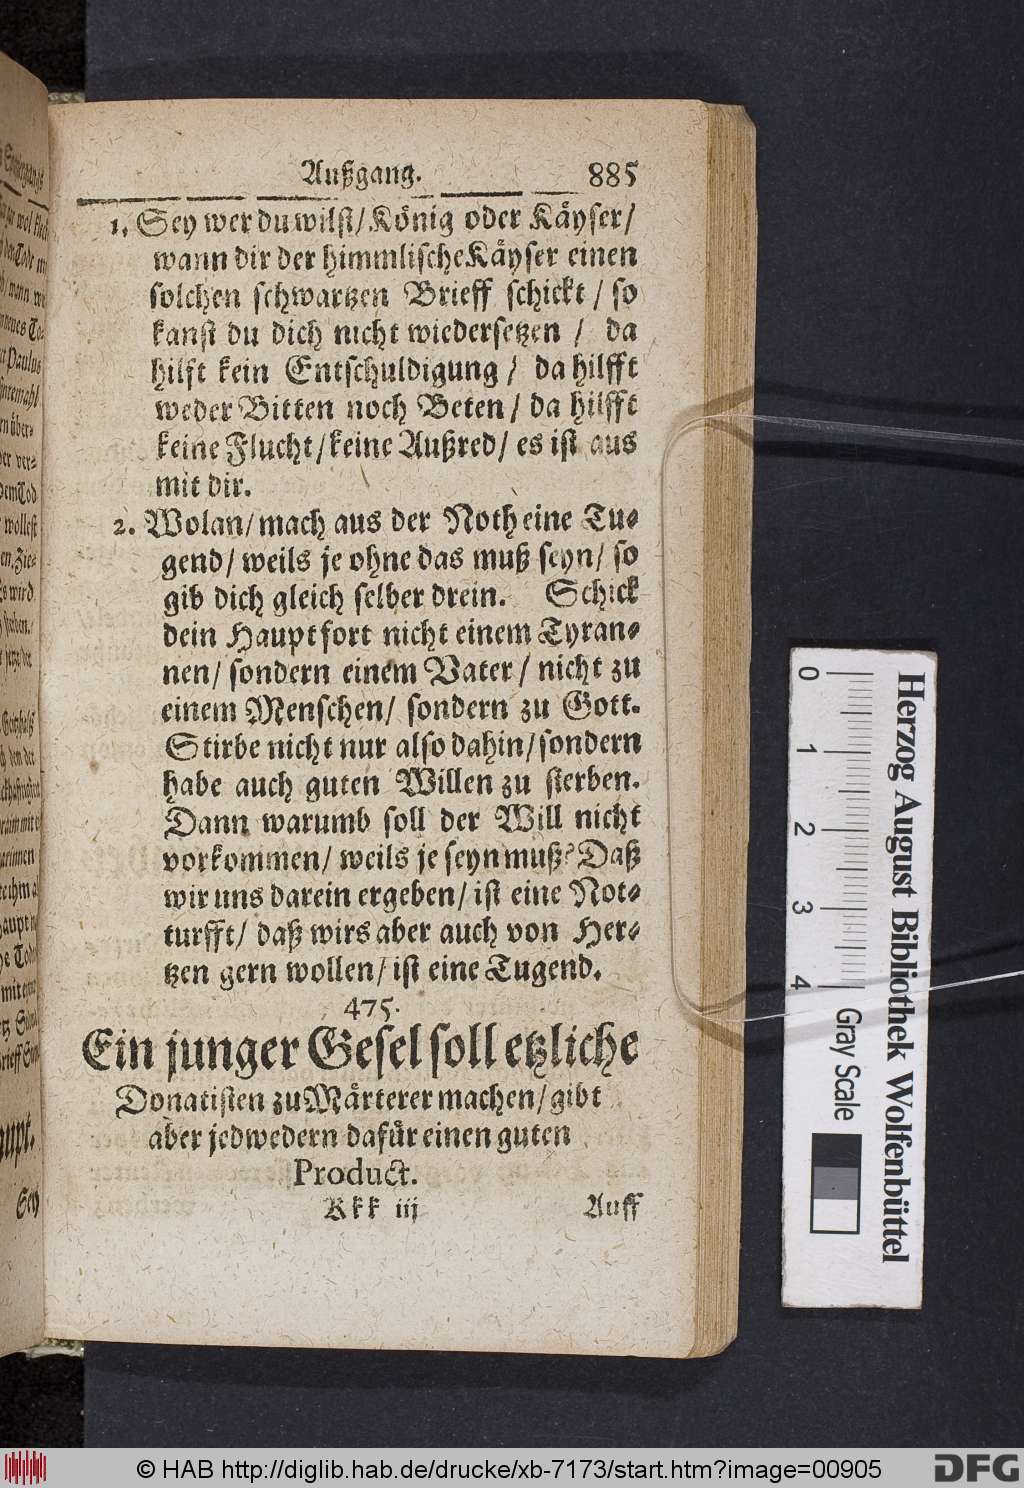 Außgang. 885
1. Sey wer du wilst/ König oder Käyser/
wann dir der himmlische Käyser einen
solchen schwartzen Brieff schickt / so
kanst du dich nicht wiedersetzen / da
hilft kein Entschuldigung / da hilfft
weder Bitten noch Beten / da hilfft
keine Flucht / keine Außred / es ist aus
mit dir.
2. Wolan / mach aus der Noth eine Tu-
gend / weils je ohne das muß seyn / so
gib dich gleich selber drein. Schick
dein Haupt fort nicht einem Tyran-
nen / sondern einem Vater / nicht zu
einem Menschen / sondern zu Gott.
Stirbe nicht nur also dahin / sondern
habe auch guten Willen zu sterben.
Dann warumb soll der Will nicht
vorkommen / weils je seyn muß? Daß
wir uns darein ergeben / ist eine Not-
turfft / daß wirs aber auch von Her-
tzen gern wollen / ist eine Tugend.
475.
Ein junger Gesel soll etzliche
Donatisten zu Märterer machen / gibt
aber jedwedern dafür einen guten
Product.
Kkk iij Auff
Paulus
wollest
wird
Tod
Sey
0 1 2 3 4
Herzog August Bibliothek Wolfenbüttel
Gray Scale
© HAB http://diglib.hab.de/drucke/xb-7173/start.htm?image=00905
DFG